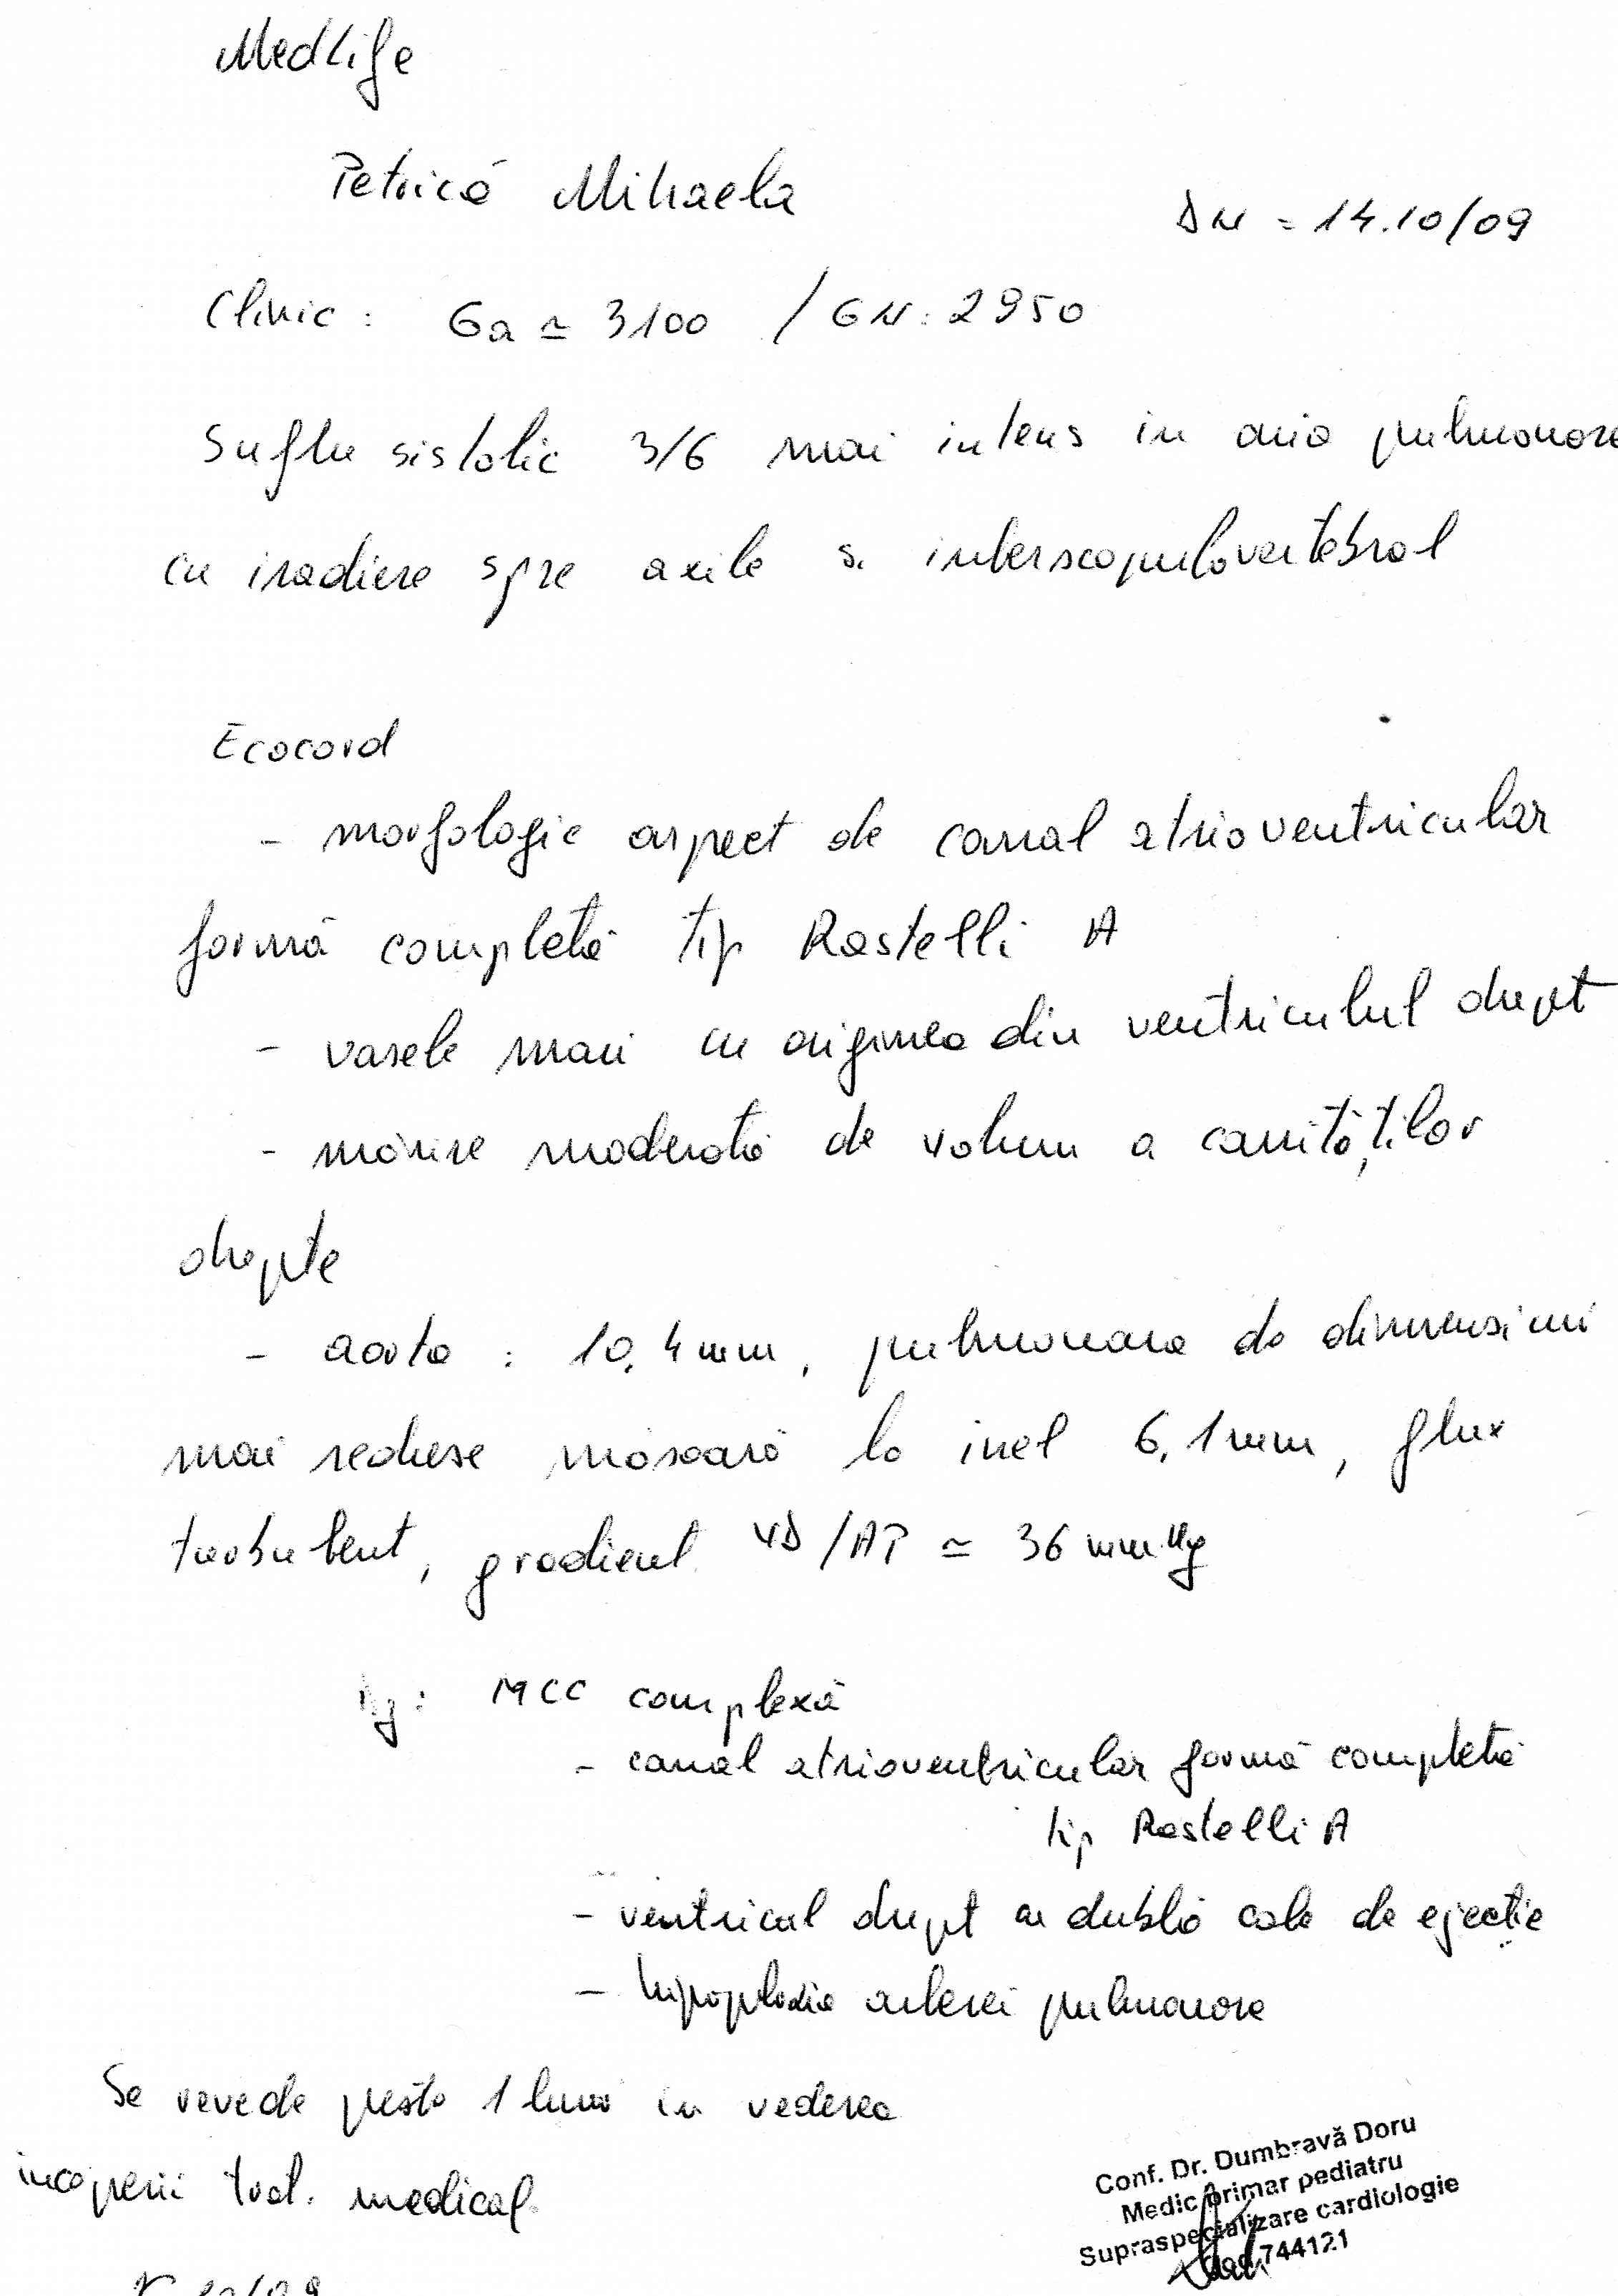 MedLife
Petrică Mihaela
DN = 14.10/09
Clinic: Ga ≃ 3100 / GN: 2950
Suflu sistolic 3/6 mai intens in aria pulmonare
cu iradiere spre axile si interscapulovertebral
Ecocord
- morfologic aspect de canal atrioventricular
formă completă tip Rastelli A
- vasele mari cu originea din ventriculul drept
- mărire moderată de volum a cavităților
drepte
- aorta : 10,4 mm, pulmonara de dimensiuni
mai reduse măsoară la inel 6,1 mm, flux
turbulent, gradient VD/AP ≃ 36 mmHg
Dg: MCC complexă
- canal atrioventricular formă completă
tip Rastelli A
- ventricul drept cu dublă cale de ejecție
- hipoplazia arterei pulmonare
Se revede peste 1 lună in vederea
inceperii trat. medical
Conf. Dr. Dumbravă Doru
Medic primar pediatru
Supraspecializare cardiologie
744121